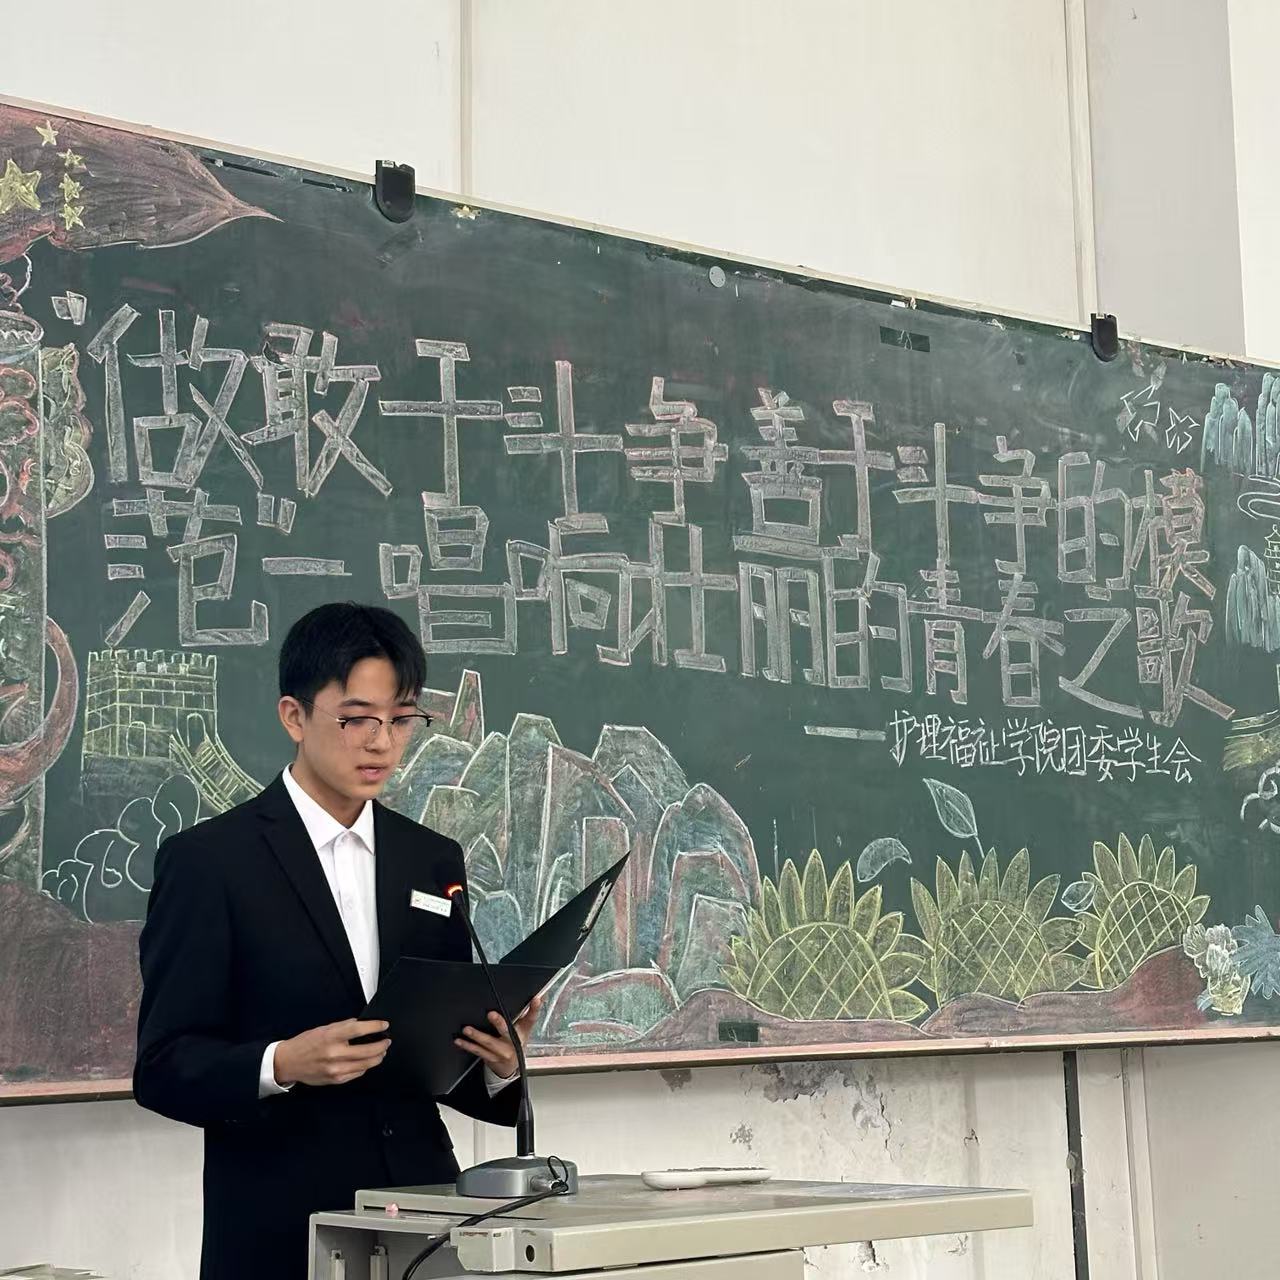 “做敢于斗争善于斗争的模
范”一唱响壮丽的青春之歌
——护理福祉学院团委学生会